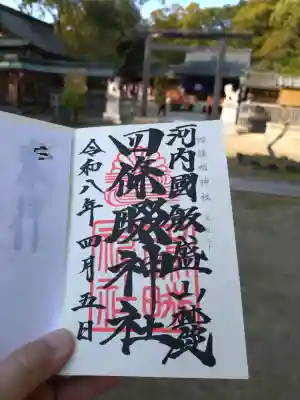 河内國飯盛山麓
四條畷神社
令和八年四月五日